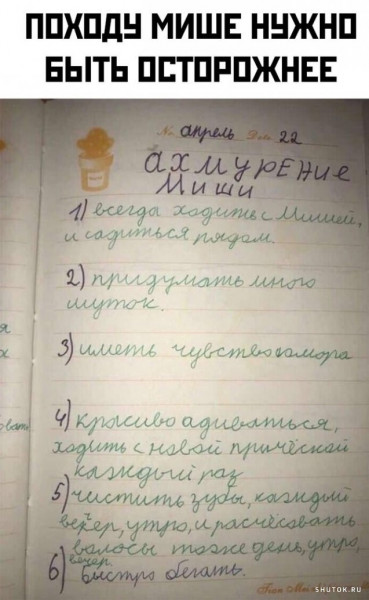 ПОХОДУ МИШЕ НУЖНО
БЫТЬ ОСТОРОЖНЕЕ
No. апрель Date 22
ахмурение
Миши
1) всегда ходить с Мишей,
и садиться рядом.
2) придумать много
шуток.
3) иметь чувство юмора
4) красиво адиваться,
ходить с новой причёской
каждый раз
5) чистить зубы, каждый
вечер, утро, и расчёсовать
волосы тоже день, утро,
вечер.
6) быстро бегать.
SHUTOK.RU